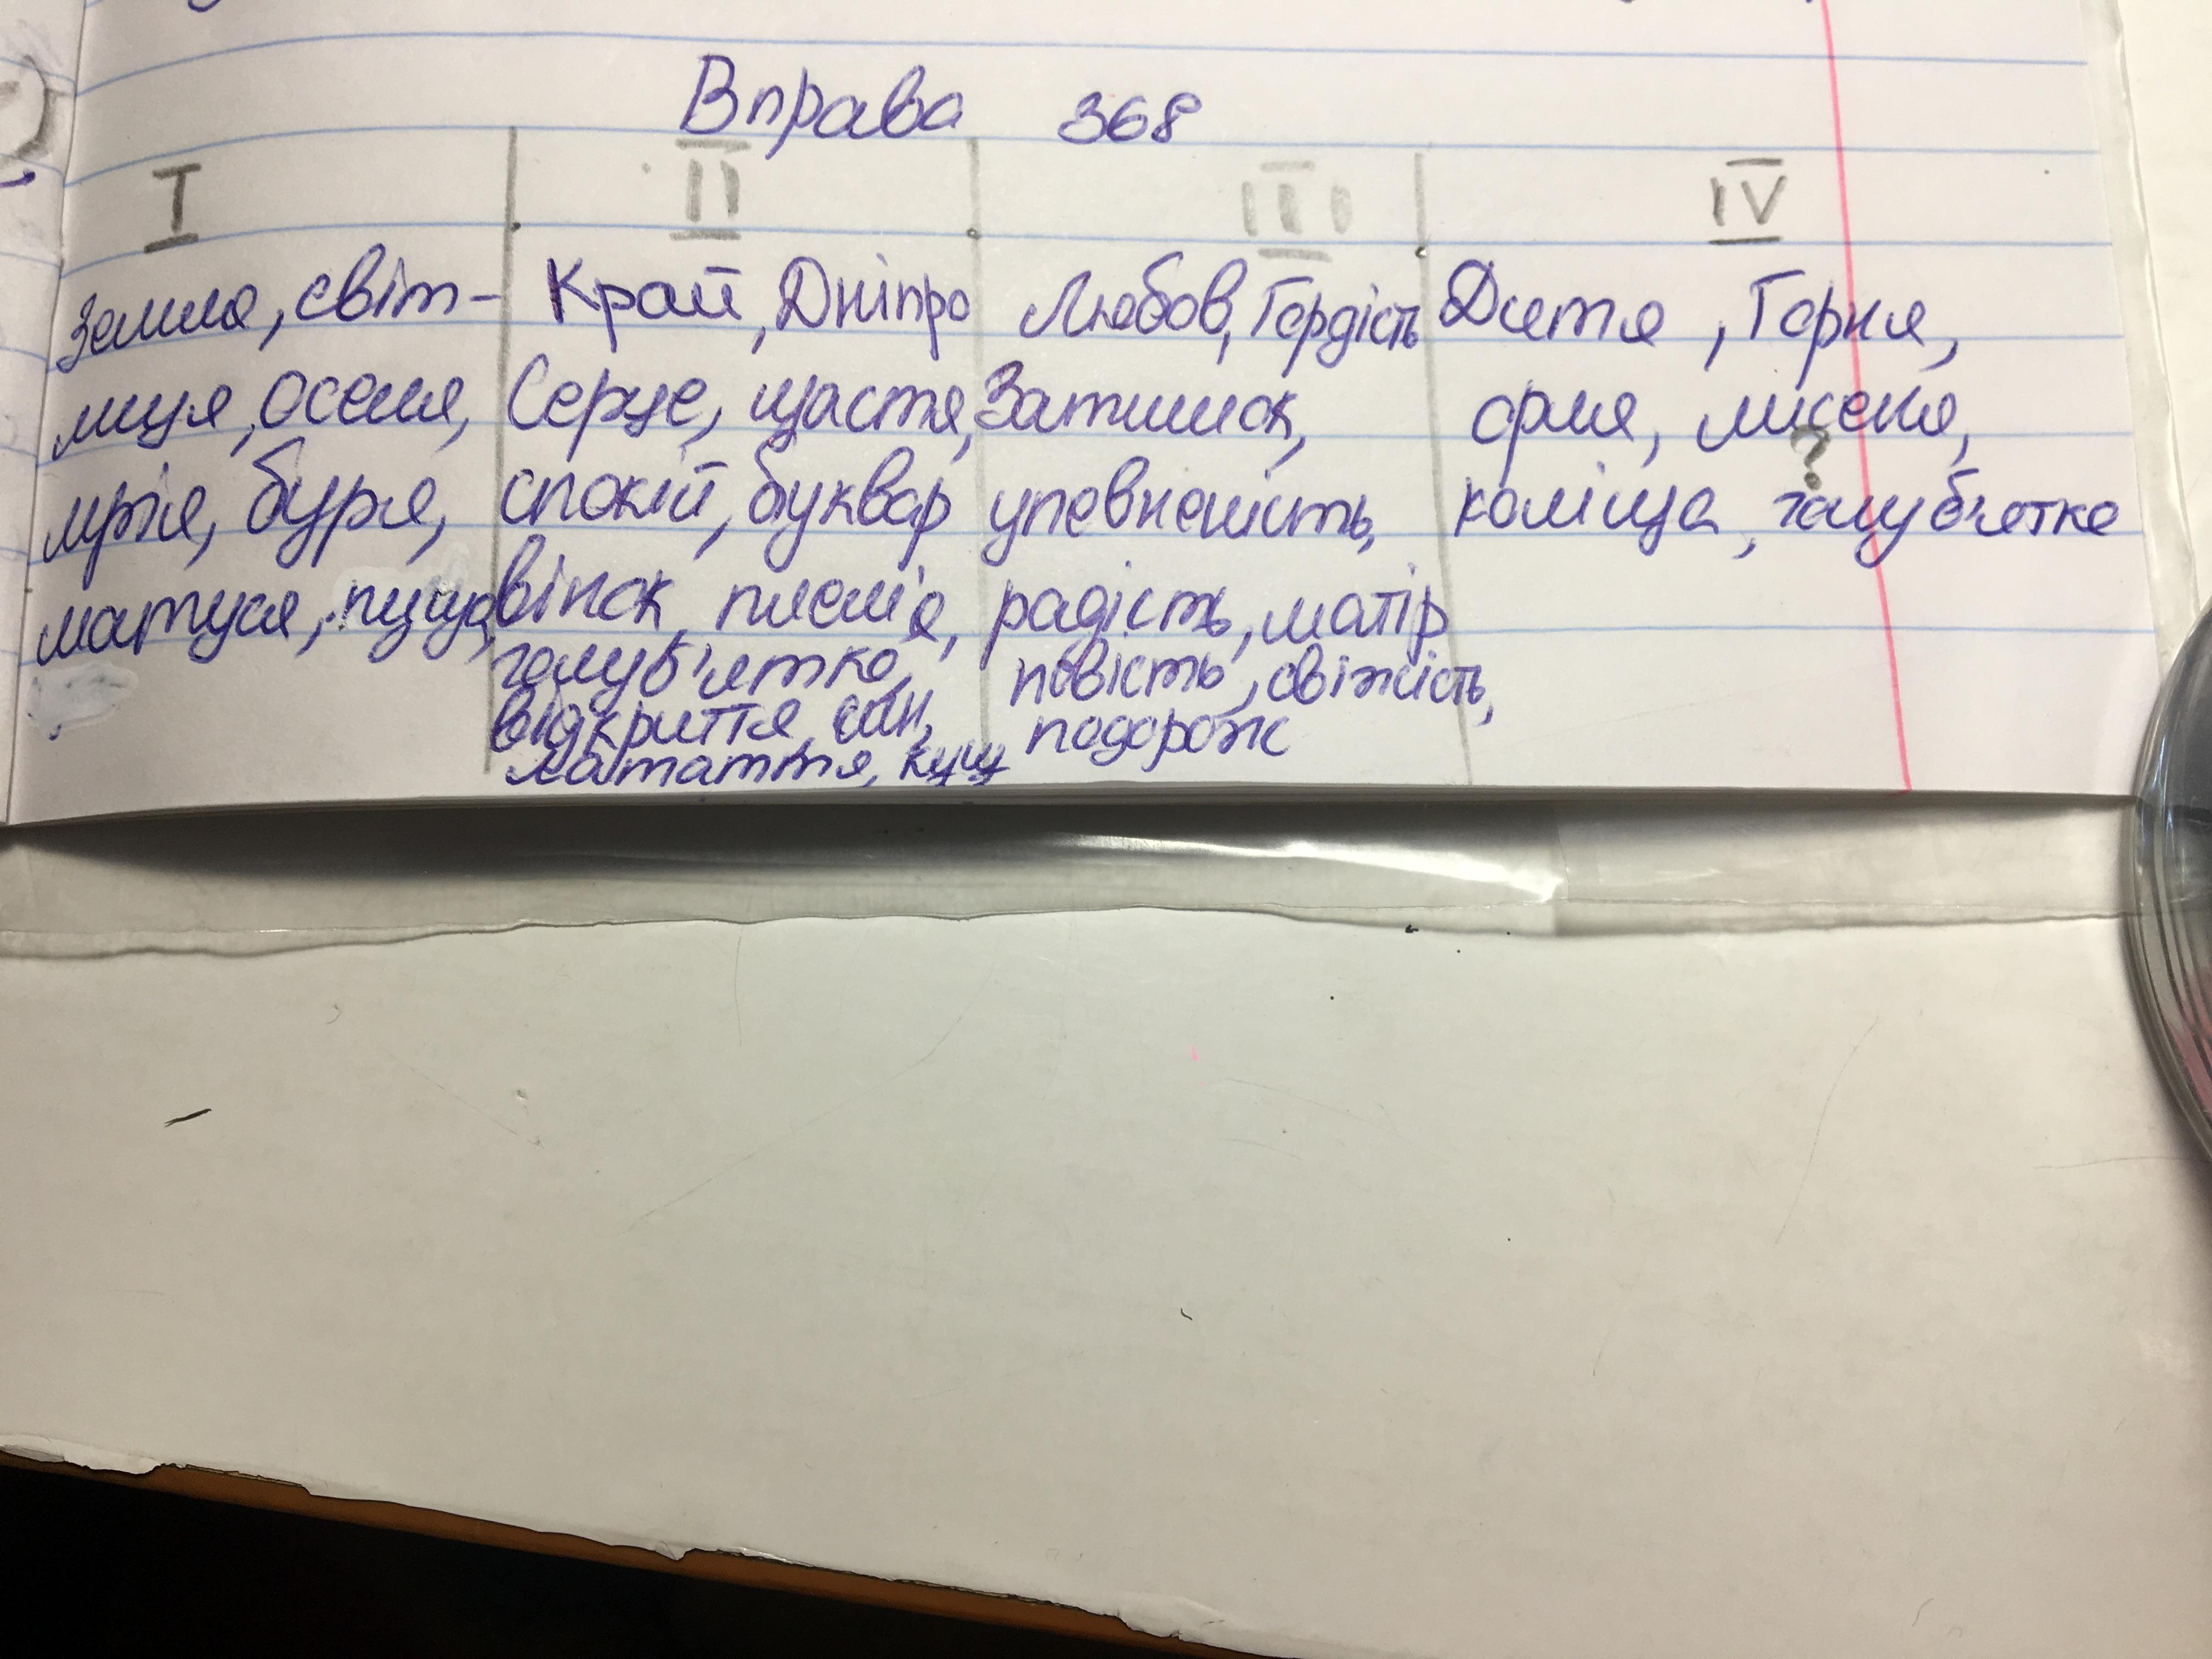 Вправа 368
I
земля, світ-
лиця, оселя,
мрія, буря,
матуся, пуща,
II
Край, Дніпро
Серце, щастя,
спокій, буквар
вінок, плем'я,
голуб'ятко,
відкриття, син,
латаття, кущ
III
Любов, Гордість
Затишок,
упевненість,
радість, матір
повість, свіжість,
подорож
IV
Дитя, Горня,
орля, лисеня,
?
коліща, голуб'ятко